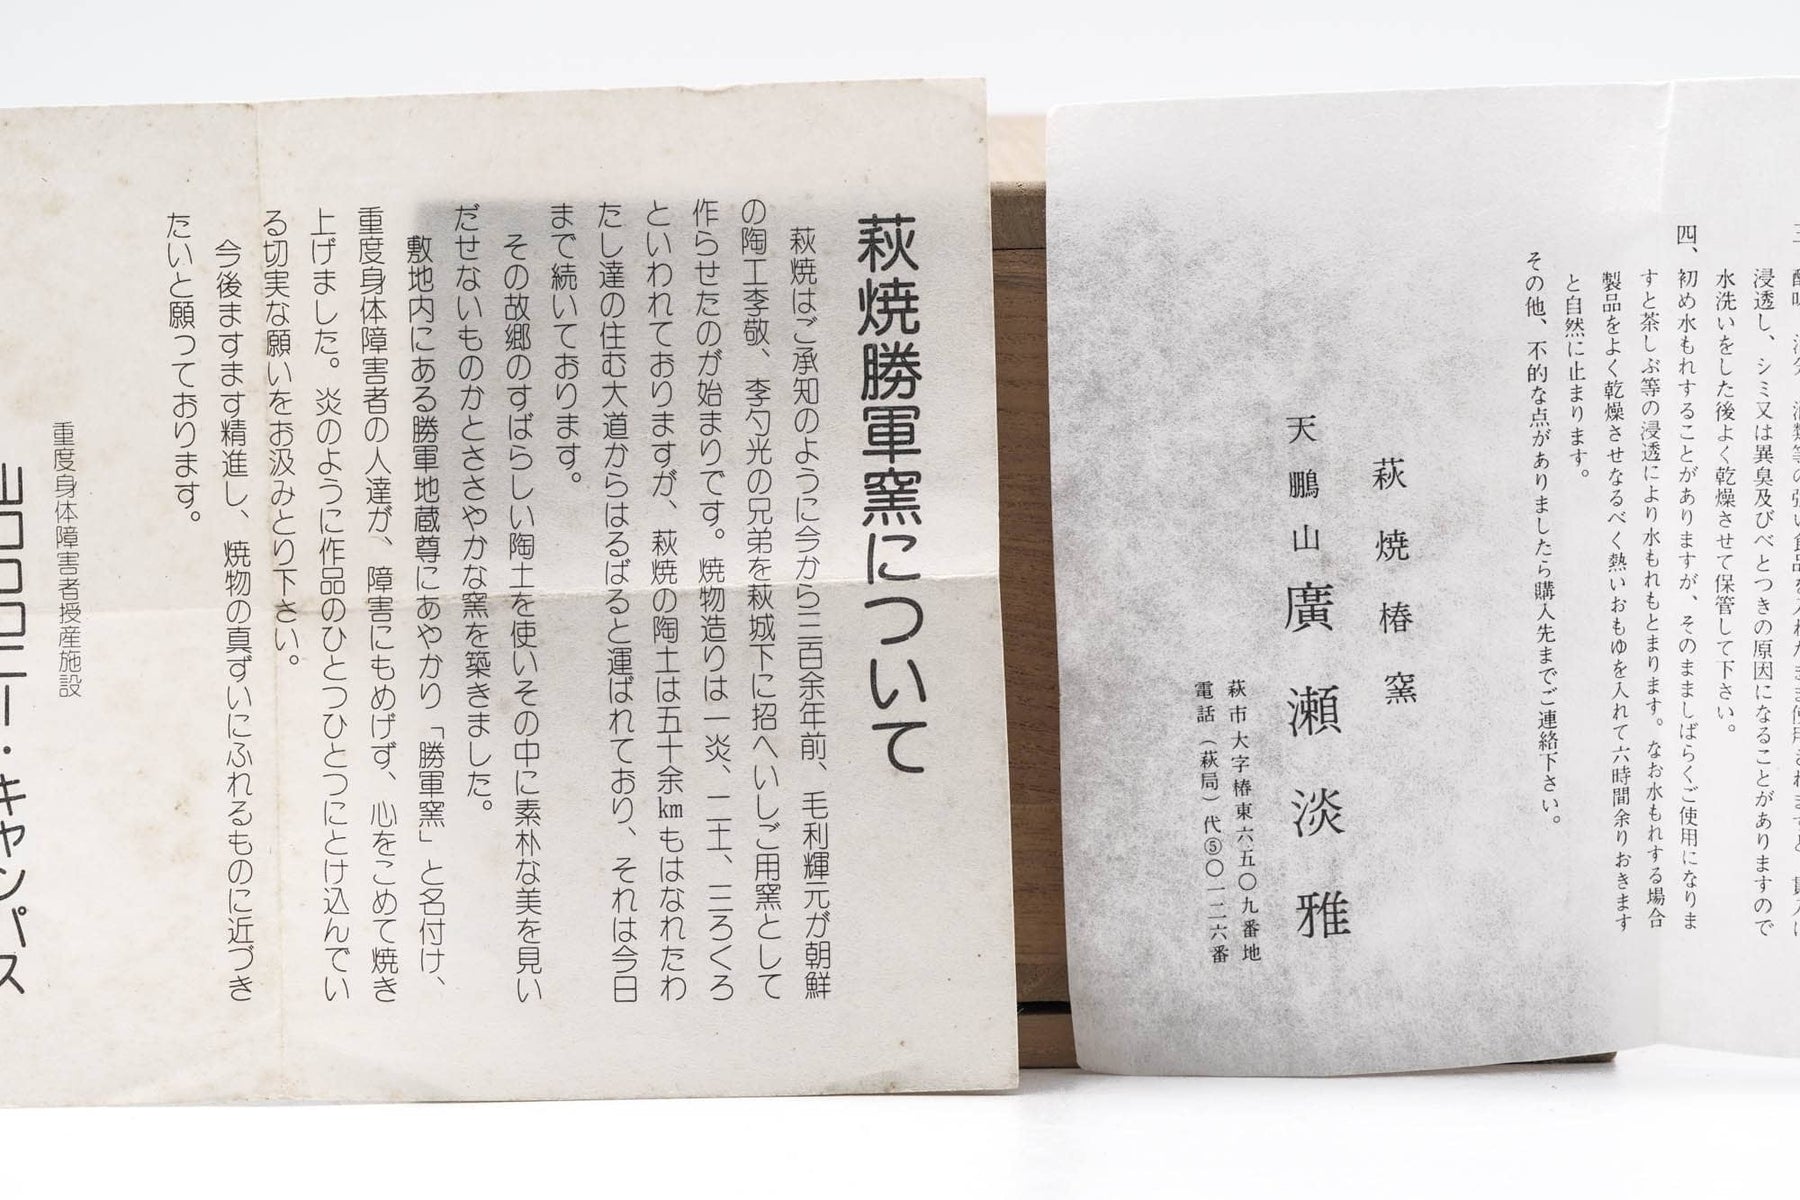 萩焼勝軍窯について
萩焼はご承知のように今から三百余年前、毛利輝元が朝鮮
の陶工李敬、李勺光の兄弟を萩城下に招へいしご用窯として
作らせたのが始まりです。焼物造りは一炎、二土、三ろくろ
といわれておりますが、萩焼の陶土は五十余kmもはなれたわ
たし達の住む大道からはるばると運ばれており、それは今日
まで続いております。
その故郷のすばらしい陶土を使いその中に素朴な美を見い
だせないものかとささやかな窯を築きました。
敷地内にある勝軍地蔵尊にあやかり「勝軍窯」と名付け、
重度身体障害者の人達が、障害にもめげず、心をこめて焼き
上げました。炎のように作品のひとつひとつにとけ込んでい
る切実な願いをお汲みとり下さい。
今後ますます精進し、焼物の真ずいにふれるものに近づき
たいと願っております。
重度身体障害者授産施設
山口コロニー・キャンパス
浸透し、シミ又は異臭及びべとつきの原因になることがありますので
水洗いをした後よく乾燥させて保管して下さい。
四、初め水もれすることがありますが、そのまましばらくご使用になりま
すと茶しぶ等の浸透により水もれもとまります。なお水もれする場合
製品をよく乾燥させなるべく熱いおもゆを入れて六時間余りおきます
と自然に止まります。
その他、不的な点がありましたら購入先までご連絡下さい。
萩焼椿窯
天鵬山廣瀬淡雅
萩市大字椿東六五〇九番地
電話（萩局）代⑤〇一二六番